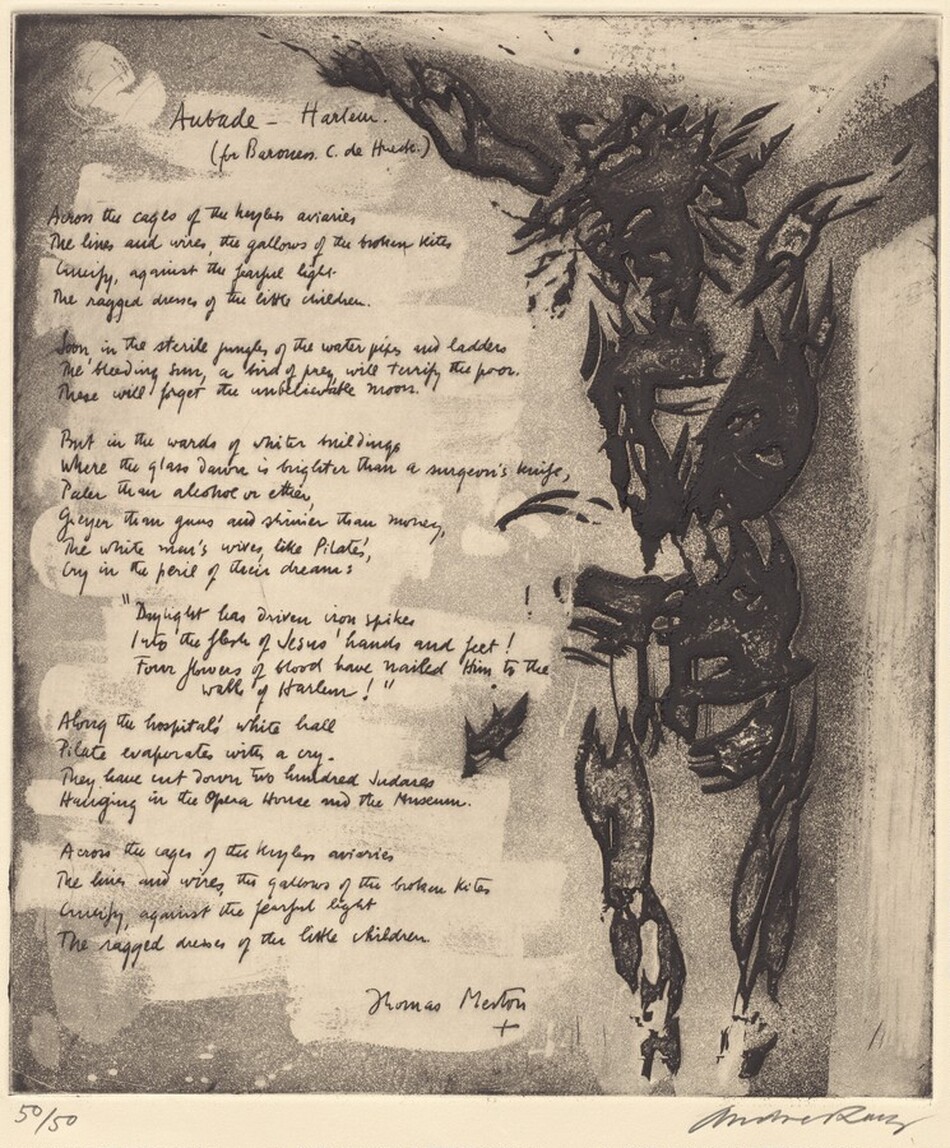 Aubade — Harlem.
(for Baroness. C. de Hueck.)
Across the cages of the keyless aviaries
The lines and wires, the gallows of the broken kites
Crucify, against the fearful light
The ragged dresses of the little children.
Soon, in the sterile jungles of the water pipes and ladders
The bleeding sun, a bird of prey, will terrify the poor.
These will forget the unbelievable moon.
But in the wards of whiter buildings
Where the glass dawn is brighter than a surgeon's knife,
Paler than alcohol or ether,
Greyer than guns and shinier than money,
The white men's wives, like Pilate's,
Cry in the peril of their dreams:
"Daylight has driven iron spikes
Into the flesh of Jesus' hands and feet!
Four flowers of blood have nailed Him to the
walls of Harlem!"
Along the hospitals' white hall
Pilate evaporates with a cry.
They have cut down two hundred Judases
Hanging in the Opera House and the Museum.
Across the cages of the keyless aviaries
The lines and wires, the gallows of the broken kites
Crucify, against the fearful light
The ragged dresses of the little children.
Thomas Merton
+
50/50
Andre Racz